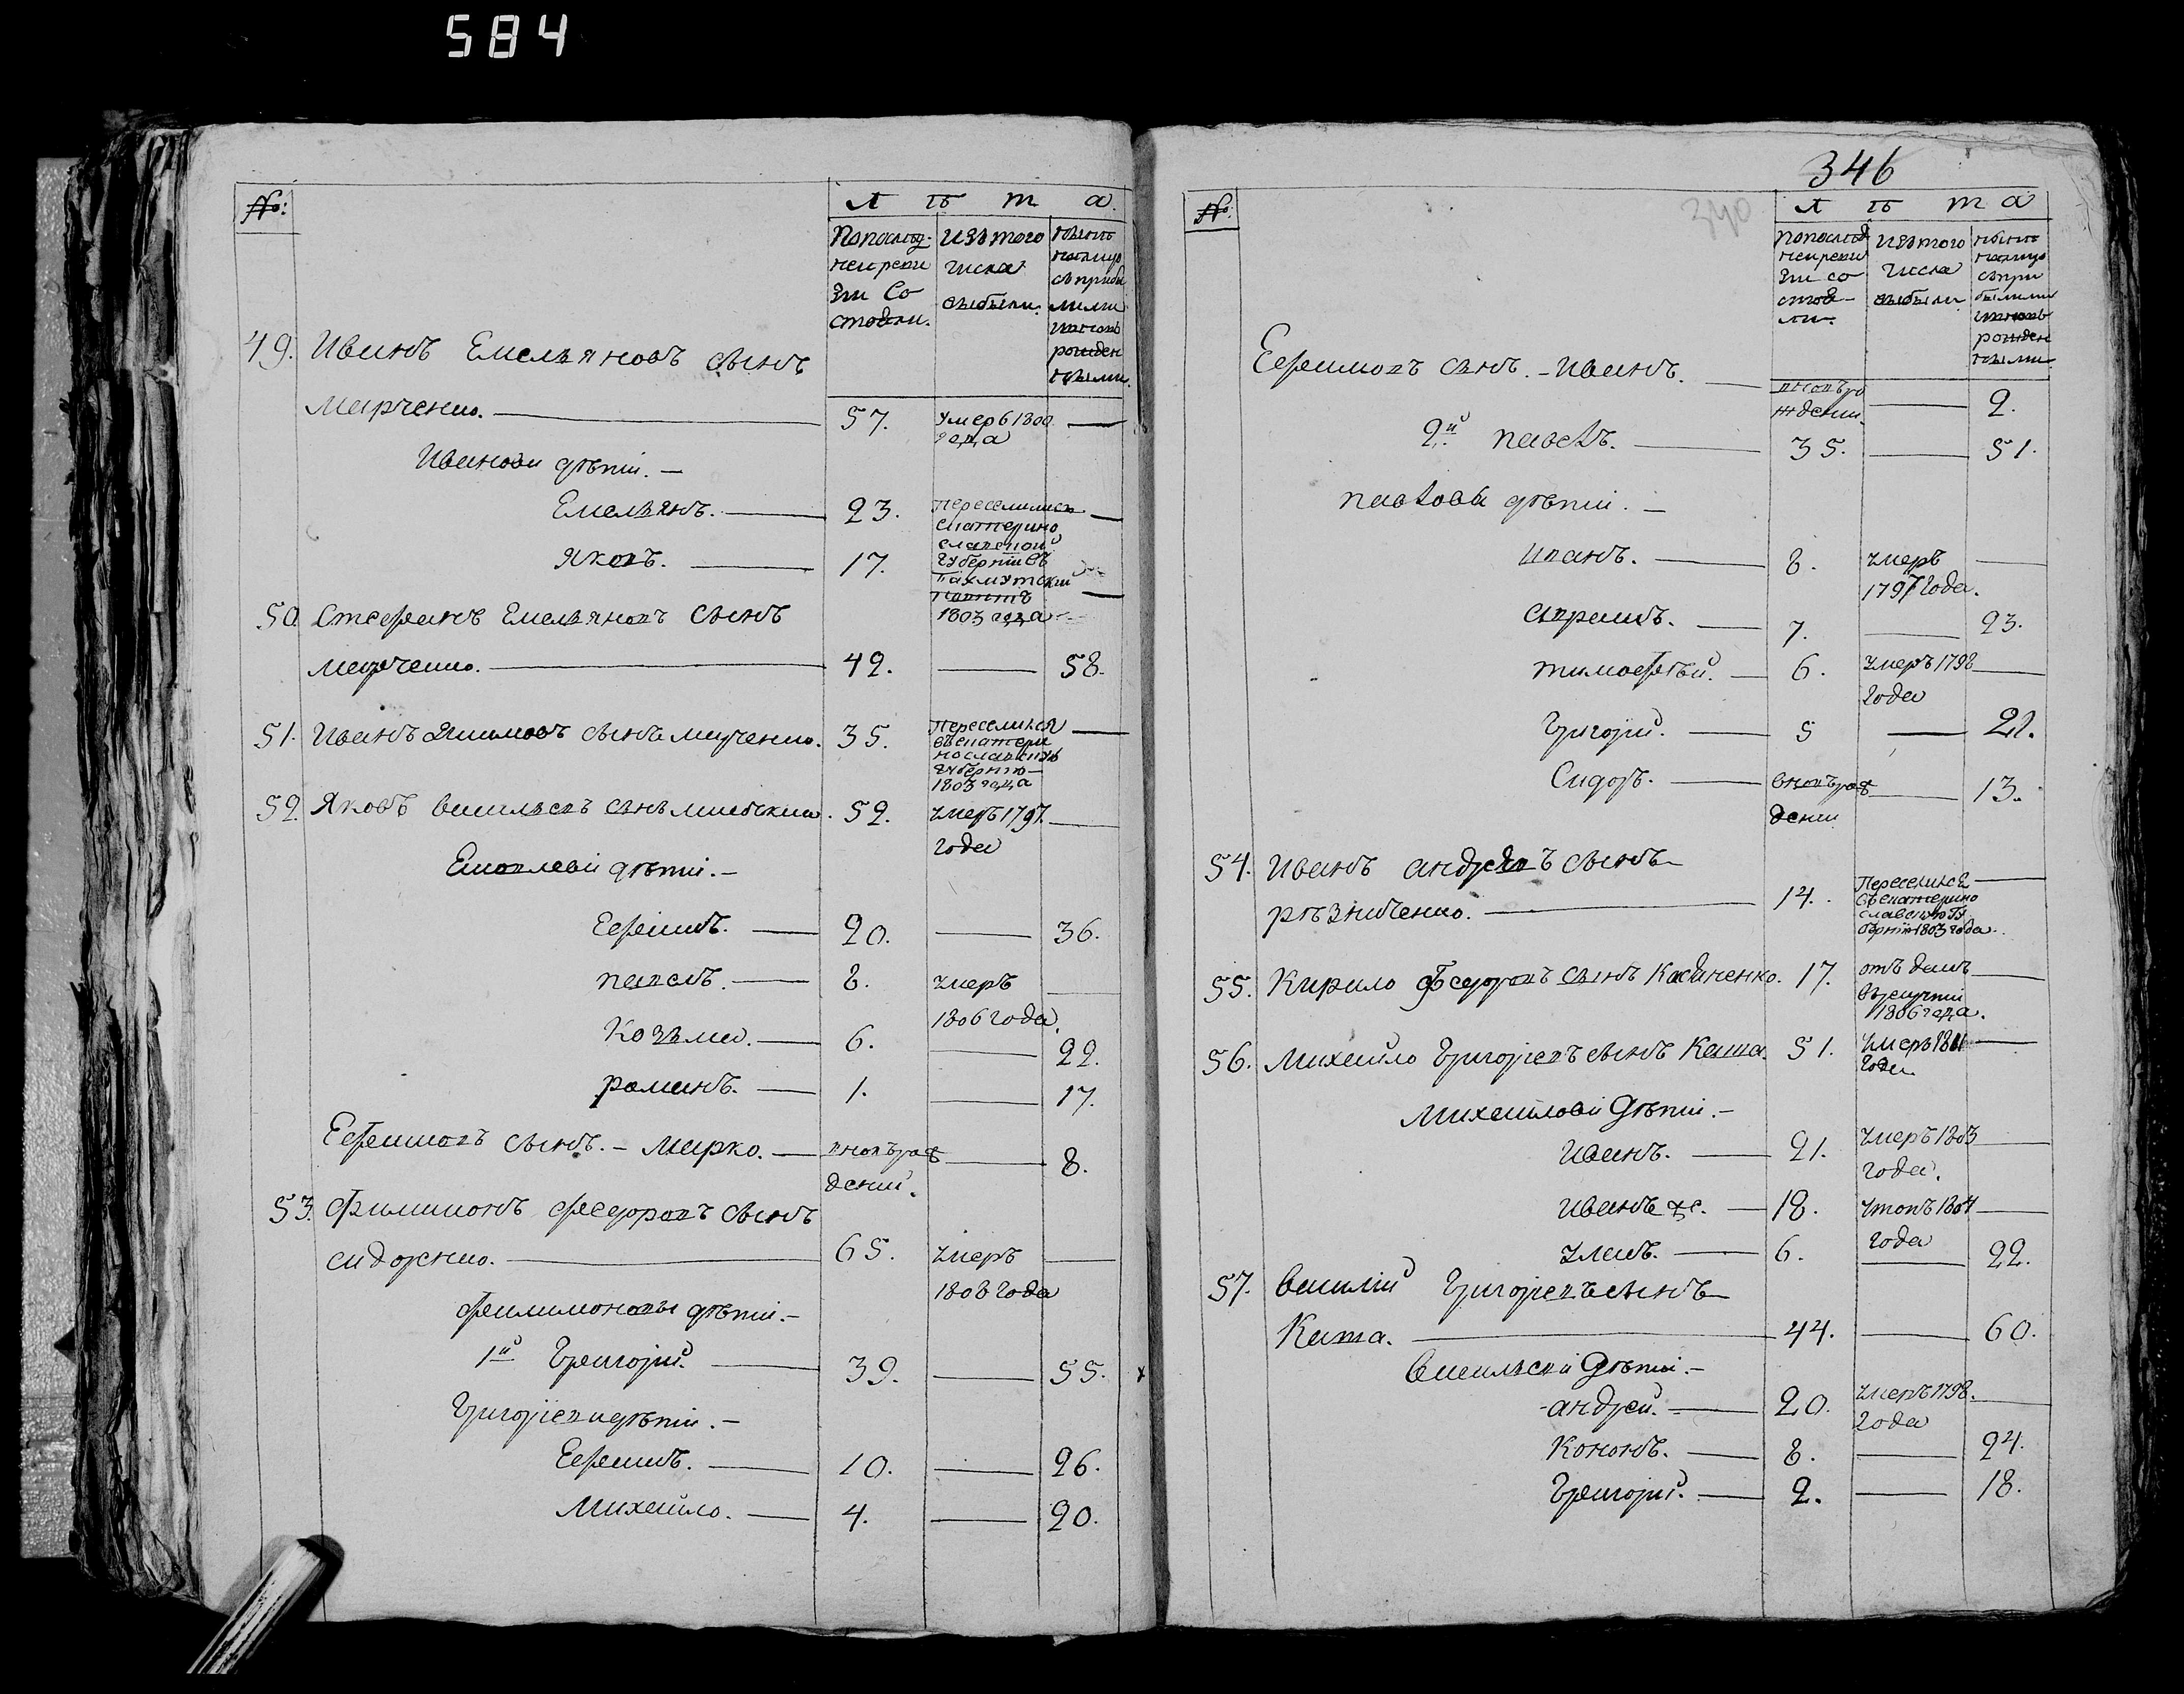 584
№:
Л ѣ т а.
По послѣд-
ней реви
зіи со
стояли.
изъ того
числа
выбыли.
нынѣ
на лицо
съ прибы
лыми
и вновь
рожден
ными.
49. Иванъ Емельяновъ сынъ
Марченко. 57. умер 6 1808 года —
Ивановы дѣти. —
Емельянъ. — 23. переселились екатерино —
Яковъ. — 17. славской губерніи въ бахмутскій 1803 года —
50 Стефанъ Емельяновъ сынъ
Марченко. — 42. — 58.
51. Иванъ сынъ 35. Переселился въ екатеринославскую губернію — 1803 года —
52. Яковъ Васильевъ сынъ 52. умеръ 1797. года —
Яковлевы дѣти. —
Ефримъ. — 20. — 36.
павелъ. — 8. умеръ 1806 года. —
Козьма. — 6. — 22.
романъ. — 1. — 17.
Ефримовъ сынъ. — Марко. — вновь рож дений. — 8.
53. Филимонъ Федоровъ сынъ
сидоренко. — 65. умеръ 1808 года —
Филимоновы дѣти. —
1й Григорій. — 39. — 55.
Григоріевы дѣти. —
Ефримъ. — 10. — 26.
Михайло. — 4. — 20.
346
340
№:
Л ѣ т а
По послѣд
ней реви
зіи со
стоя-
ли.
изъ того
числа
выбыли
нынѣ
на лицо
съ при
былыми
и вновь
рожден
ными
Ефримовъ сынъ. — Иванъ. — вновь ро жденій. — 2.
2й павелъ. — 35. — 51.
павловы дѣти. —
иванъ. — 8. умеръ 1797 года. —
— 7. — 23.
тимофѣй. — 6. умеръ 1798 года —
Григорій. — 5 — 21.
Сидоръ. — вновь рож дений — 13.
54. Иванъ андреевъ сынъ
рѣзниченко. — 14. Переселился въ екатерино славскую гу бернію 1803 года. —
55. Кирило Федоровъ сынъ Касяненко. 17. отъ данъ въ рекруты 1806 года. —
56. Михайло Григорьевъ сынъ Каша. 51. умеръ 1811 года —
Михайловы дѣти. —
Иванъ. — 21. умеръ 1803 года. —
Иванъ же. — 18. утопъ 1804 года —
— 6. — 22.
57. Василій Григорьевъ сынъ
Каша. — 44. — 60.
Васильевы дѣти. —
андрей. — 20. умеръ 1798. года —
Кононъ. — 8. — 24.
Григорій. — 2. — 18.